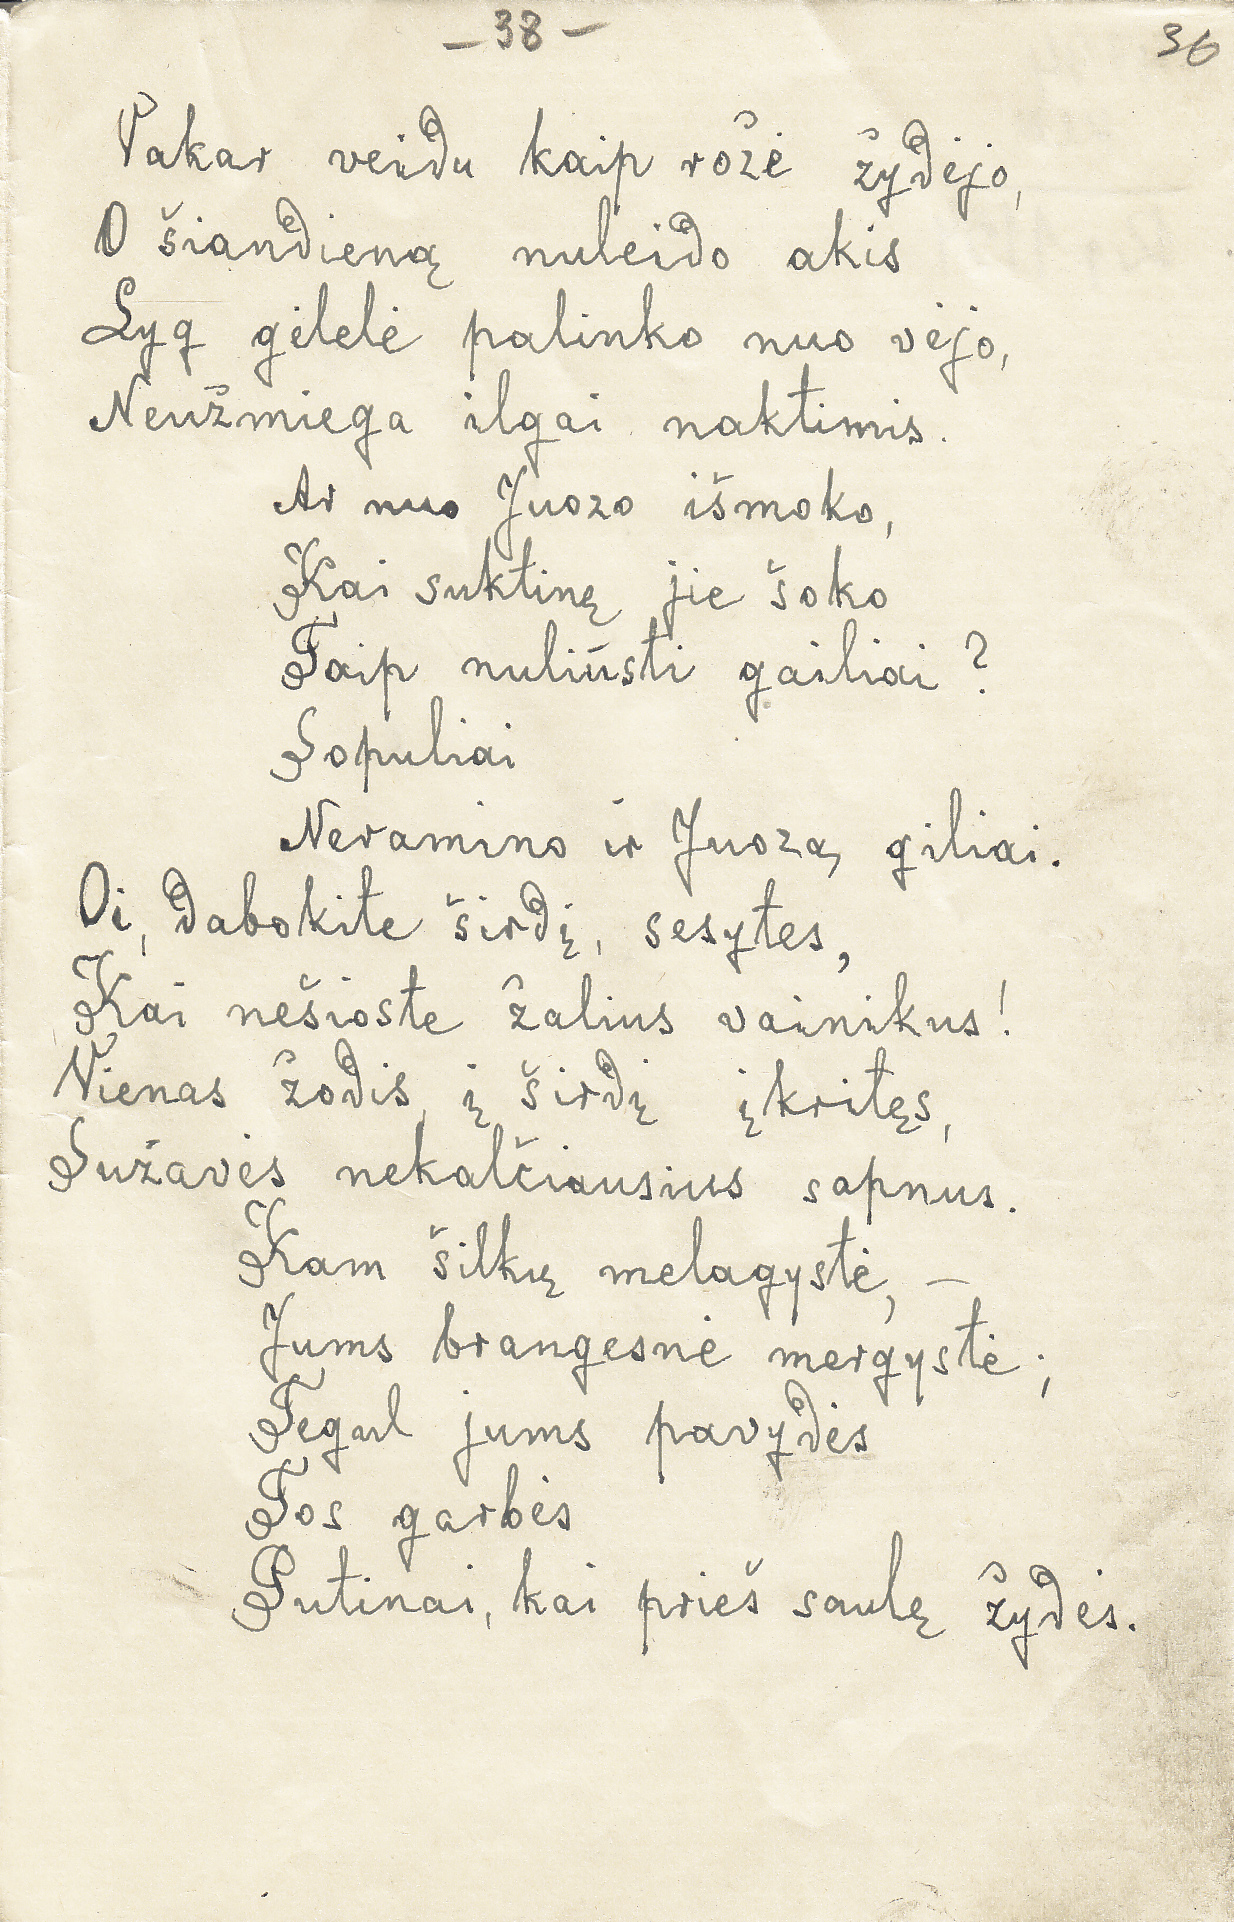 – 38 –
36
Vakar veidu kaip rožė žydėjo,
O šiandieną nuleido akis
Lyg gėlelė palinko nuo vėjo,
Neužmiega ilgai naktimis.
Ar nuo Juozo išmoko,
Kai suktinę jie šoko
Taip nuliūsti gailiai?
Sopuliai
Neramino ir Juozą giliai.
Oi, dabokite širdį, sesytes,
Kai nešioste žalius vainikus!
Vienas žodis, į širdį įkritęs,
Sužavės nekalčiausius sapnus.
Kam šilkų melagystė, –
Jums brangesnė mergystė;
Tegul jums pavydės
Tos garbės
Putinai, kai prieš saulę žydės.